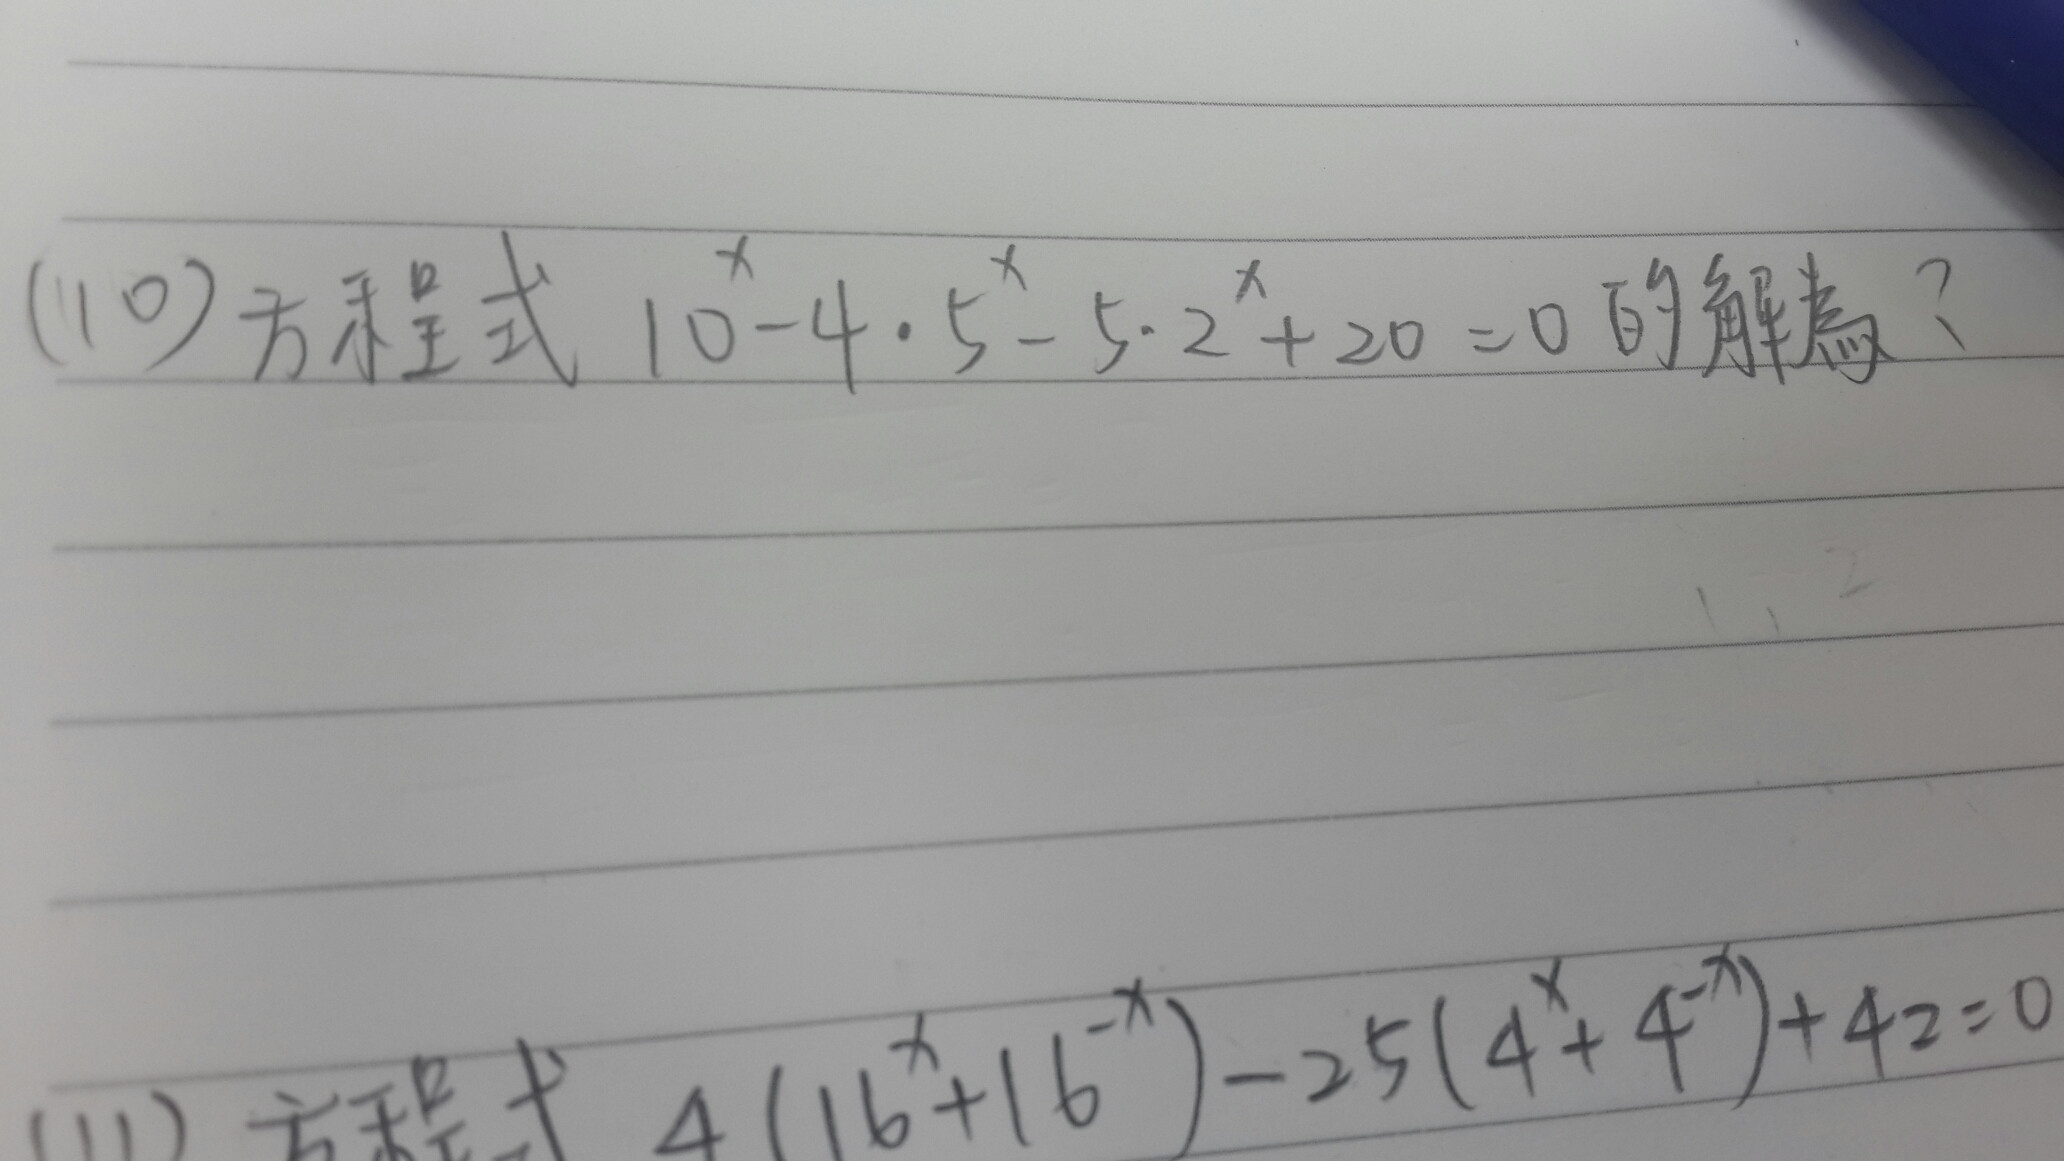 (10) 方程式 10^x - 4·5^x - 5·2^x + 20 = 0 的解為?
1, 2
(11) 方程式 4(16^x + 16^-x) - 25(4^x + 4^-x) + 42 = 0